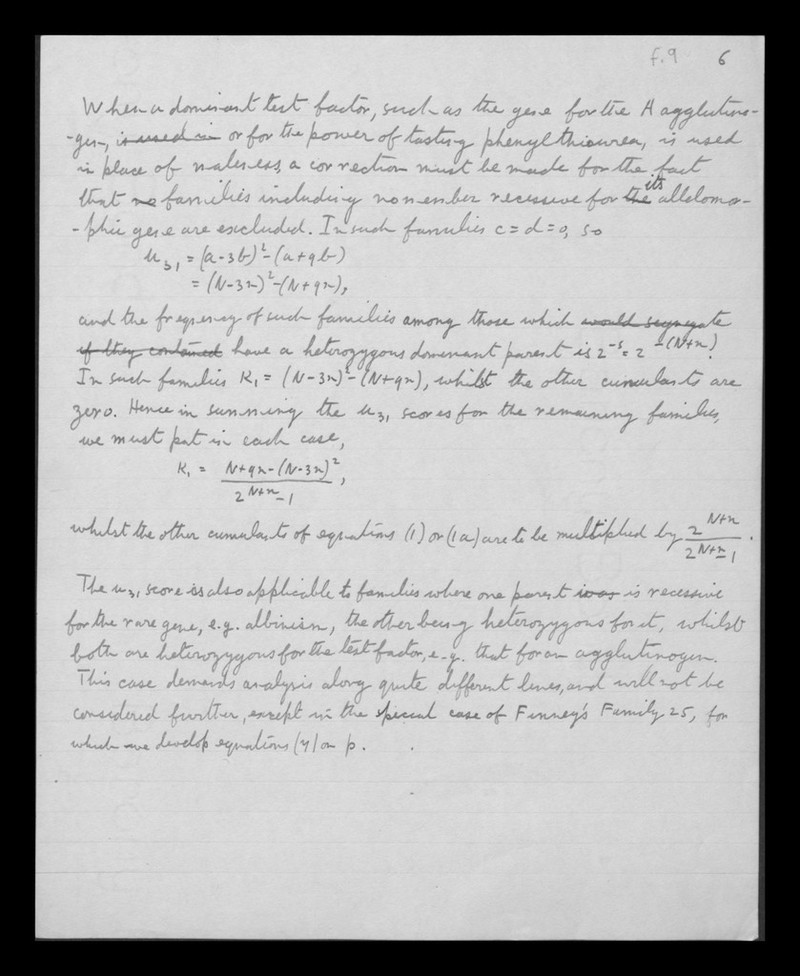 f.9 6
When a dominant test factor, such as the gene for the A agglutino-
-gen, is used in or for the power of tasting phenylthiourea, is used
in place of maleness, a correction must be made for the fact
that no families including no member recessive for the its allelomor-
-phic gene are excluded. In such families c = d = 0, so
u₃₁ = (a-3b)² - (a+9b)
= (N-3n)² - (N+9n),
and the frequency of such families among those which would segregate
if they contained have a heterozygous dominant parent is 2⁻ˢ = 2^-(N+n).
In such families K₁ = (N-3n)² - (N+9n), whilst the other cumulants are
zero. Hence in summing the u₃₁ scores for the remaining families,
we must put in each case,
K₁ = (N+9n-(N-3n)²)/(2^(N+n) - 1),
whilst the other cumulants of equations (1) or (1a) are to be multiplied by 2^(N+n)/(2^(N+n) - 1).
The u₃₁ score is also applicable to families where one parent was is recessive
for the rare gene, e.g. albinism, the other being heterozygous for it, whilst
both are heterozygous for the test factor, e.g. that for an agglutinogen.
This case demands analysis along quite different lines, and will not be
considered further, except in the special case of Finney's Family 25, for
which we develop equations (4) on p. .